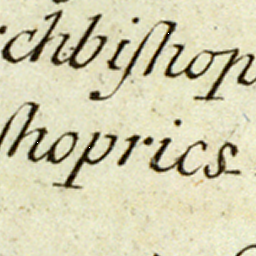 rchbiſhop
ſhoprics